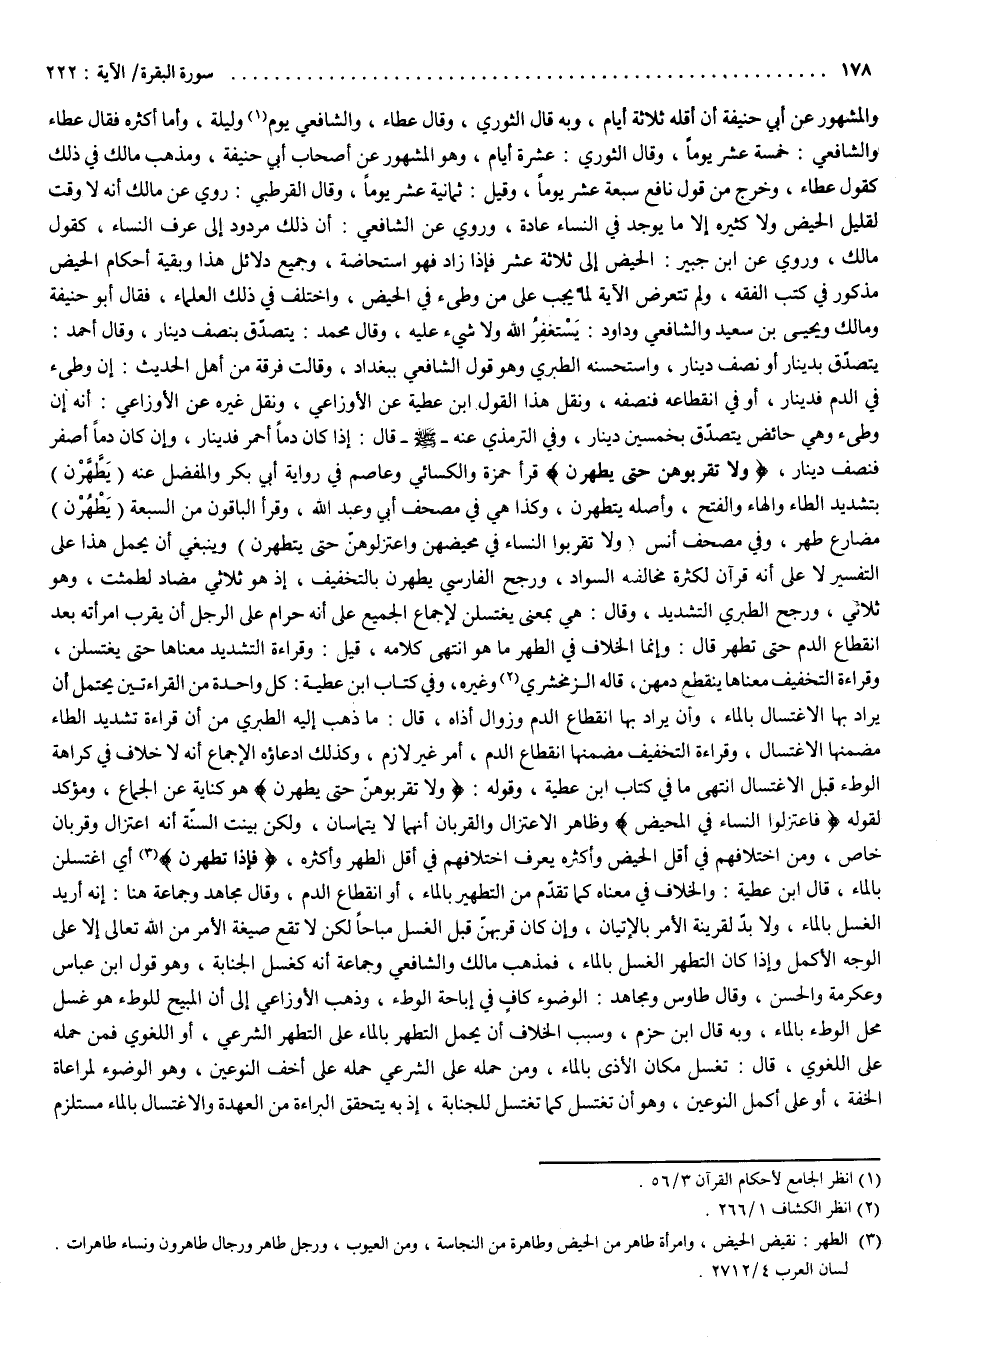 ١٧٨ ........................................................ سورة البقرة/ الآية : ٢٢٢
والمشهور عن أبي حنيفة أن أقله ثلاثة أيام ، وبه قال الثوري ، وقال عطاء ، والشافعي يوم(١) وليلة ، وأما أكثره فقال عطاء
والشافعي : خمسة عشر يوماً ، وقال الثوري : عشرة أيام ، وهو المشهور عن أصحاب أبي حنيفة ، ومذهب مالك في ذلك
كقول عطاء ، وخرج من قول نافع سبعة عشر يوماً ، وقيل : ثمانية عشر يوماً ، وقال القرطبي : روي عن مالك أنه لا وقت
لقليل الحيض ولا كثيره إلا ما يوجد في النساء عادة ، وروي عن الشافعي : أن ذلك مردود إلى عرف النساء ، كقول
مالك ، وروي عن ابن جبير : الحيض إلى ثلاثة عشر فإذا زاد فهو استحاضة ، وجميع دلائل هذا وبقية أحكام الحيض
مذكور في كتب الفقه ، ولم تتعرض الآية لما يجب على من وطىء في الحيض ، واختلف في ذلك العلماء ، فقال أبو حنيفة
ومالك ويحيـى بن سعيد والشافعي وداود : يَسْتغفِرُ الله ولا شيء عليه ، وقال محمد : يتصدّق بنصف دينار ، وقال أحمد :
يتصدّق بدينار أو نصف دينار ، واستحسنه الطبري وهو قول الشافعي ببغداد ، وقالت فرقة من أهل الحديث : إن وطىء
في الدم فدينار ، أو في انقطاعه فنصفه ، ونقل هذا القول ابن عطية عن الأوزاعي ، ونقل غيره عن الأوزاعي : أنه إن
وطىء وهي حائض يتصدّق بخمسين دينار ، وفي الترمذي عنه ـ ﷺ ـ قال : إذا كان دماً أحمر فدينار ، وإن كان دماً أصفر
فنصف دينار ، ﴿ ولا تقربوهن حتى يطهرن ﴾ قرأ حمزة والكسائي وعاصم في رواية أبي بكر والمفضل عنه ( يَطَّهَّرْن )
بتشديد الطاء والهاء والفتح ، وأصله يتطهرن ، وكذا هي في مصحف أبي وعبد الله ، وقرأ الباقون من السبعة ( يَطْهُرْن )
مضارع طهر ، وفي مصحف أنس ( ولا تقربوا النساء في محيضهن واعتزلوهنّ حتى يتطهرن ) وينبغي أن يحمل هذا على
التفسير لا على أنه قرآن لكثرة مخالفته السواد ، ورجح الفارسي يطهرن بالتخفيف ، إذ هو ثلاثي مضاد لطمثت ، وهو
ثلاثي ، ورجح الطبري التشديد ، وقال : هي بمعنى يغتسلن لإجماع الجميع على أنه حرام على الرجل أن يقرب امرأته بعد
انقطاع الدم حتى تطهر قال : وإنما الخلاف في الطهر ما هو انتهى كلامه ، قيل : وقراءة التشديد معناها حتى يغتسلن ،
وقراءة التخفيف معناها ينقطع دمهن ، قاله الـزمخشري(٢) وغيره، وفي كتـاب ابن عطيـة : كل واحـدة من القراءتـين يحتمل أن
يراد بها الاغتسال بالماء ، وأن يراد بها انقطاع الدم وزوال أذاه ، قال : ما ذهب إليه الطبري من أن قراءة تشديد الطاء
مضمنها الاغتسال ، وقراءة التخفيف مضمنها انقطاع الدم ، أمر غير لازم ، وكذلك ادعاؤه الإجماع أنه لا خلاف في كراهة
الوطء قبل الاغتسال انتهى ما في كتاب ابن عطية ، وقوله : ﴿ ولا تقربوهنّ حتى يطهرن ﴾ هو كناية عن الجماع ، ومؤكد
لقوله ﴿ فاعتزلوا النساء في المحيض ﴾ وظاهر الاعتزال والقربان أنهما لا يتماسان ، ولكن بينت السنّة أنه اعتزال وقربان
خاص ، ومن اختلافهم في أقل الحيض وأكثره يعرف اختلافهم في أقل الطهر وأكثره ، ﴿ فإذا تطهرن ﴾(٣) أي اغتسلن
بالماء ، قال ابن عطية : والخلاف في معناه كما تقدّم من التطهير بالماء ، أو انقطاع الدم ، وقال مجاهد وجماعة هنا : إنه أريد
الغسل بالماء ، ولا بدّ لقرينة الأمر بالإتيان ، وإن كان قربهنّ قبل الغسل مباحاً لكن لا تقع صيغة الأمر من الله تعالى إلا على
الوجه الأكمل وإذا كان التطهر الغسل بالماء ، فمذهب مالك والشافعي وجماعة أنه كغسل الجنابة ، وهو قول ابن عباس
وعكرمة والحسن ، وقال طاوس ومجاهد : الوضوء كافٍ في إباحة الوطء ، وذهب الأوزاعي إلى أن المبيح للوطء هو غسل
محل الوطء بالماء ، وبه قال ابن حزم ، وسبب الخلاف أن يحمل التطهر بالماء على التطهر الشرعي ، أو اللغوي فمن حمله
على اللغوي ، قال : تغسل مكان الأذى بالماء ، ومن حمله على الشرعي حمله على أخف النوعين ، وهو الوضوء لمراعاة
الخفة ، أو على أكمل النوعين ، وهو أن تغتسل كما تغتسل للجنابة ، إذ به يتحقق البراءة من العهدة والاغتسال بالماء مستلزم
(١) انظر الجامع لأحكام القرآن ٣/ ٥٦ .
(٢) انظر الكشاف ١/ ٢٦٦ .
(٣) الطهر : نقيض الحيض ، وامرأة طاهر من الحيض وطاهرة من النجاسة ، ومن العيوب ، ورجل طاهر ورجال طاهرون ونساء طاهرات .
لسان العرب ٤/ ٢٧١٢ .